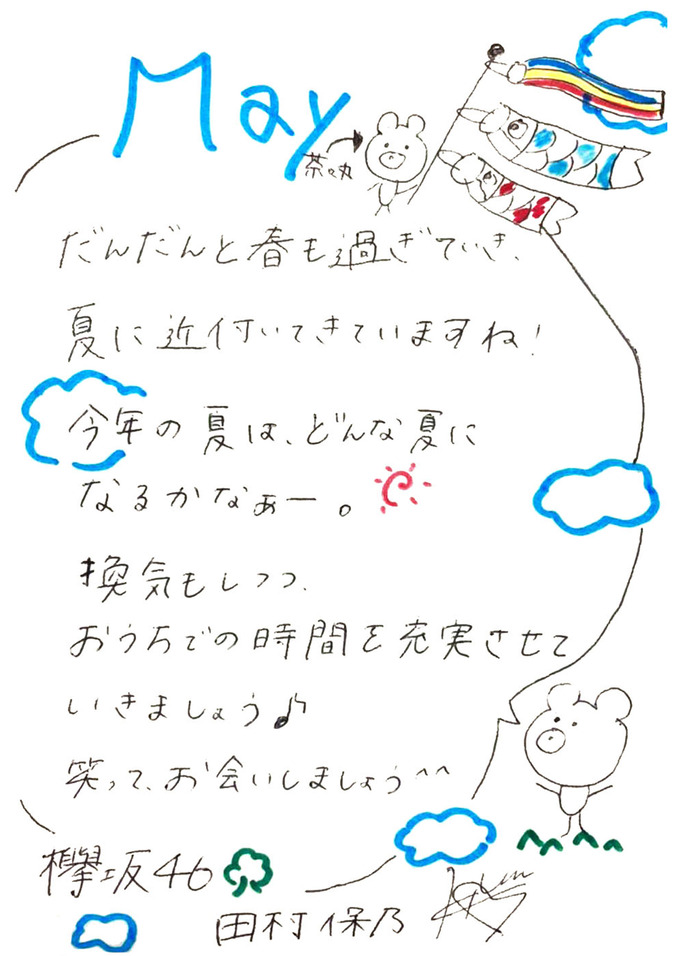 May
茶々丸
だんだんと春も過ぎていき、
夏に近付いてきていますね!
今年の夏は、どんな夏に
なるかなぁー。
換気もしつつ、
おうちでの時間を充実させて
いきましょう♪
笑って、お会いしましょう^^
欅坂46
田村保乃